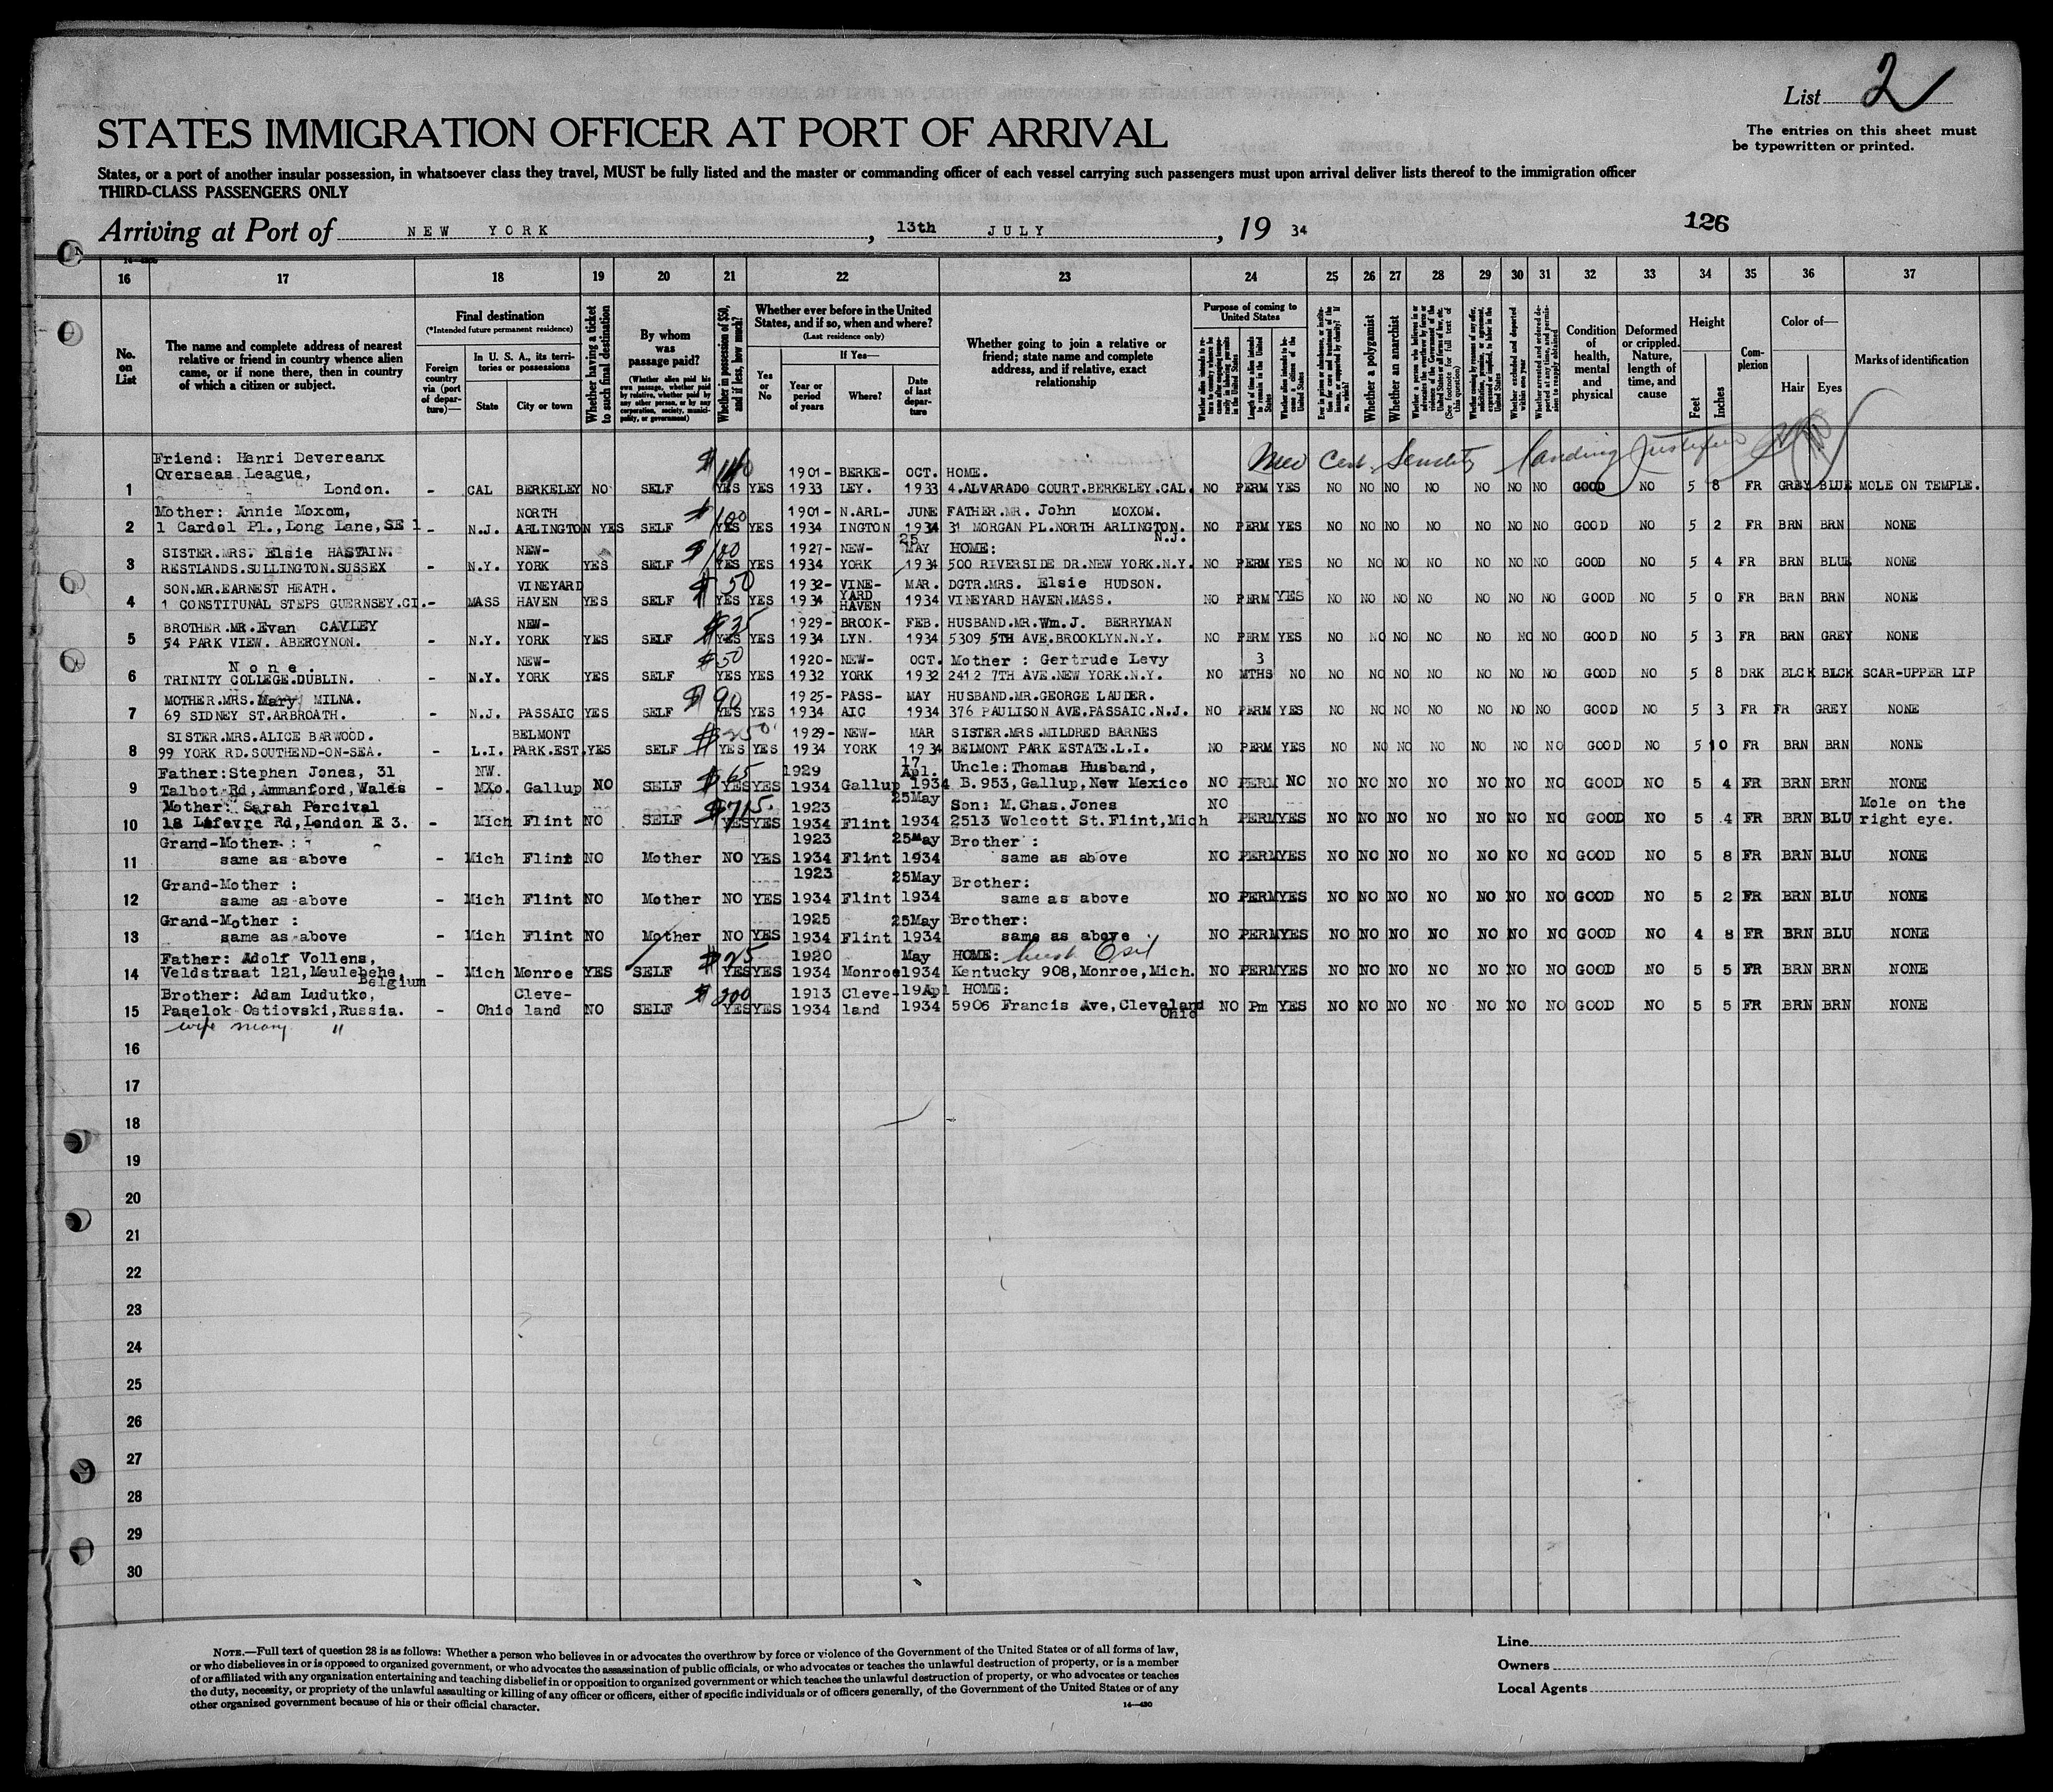 List 2
STATES IMMIGRATION OFFICER AT PORT OF ARRIVAL
The entries on this sheet must
be typewritten or printed.
States, or a port of another insular possession, in whatsoever class they travel, MUST be fully listed and the master or commanding officer of each vessel carrying such passengers must upon arrival deliver lists thereof to the immigration officer
THIRD-CLASS PASSENGERS ONLY
Arriving at Port of NEW YORK, 13th JULY, 19 34
126
16 17 18 19 20 21 22 23 24 25 26 27 28 29 30 31 32 33 34 35 36 37
No. on List
The name and complete address of nearest relative or friend in country whence alien came, or if none there, then in country of which a citizen or subject.
Final destination
(*Intended future permanent residence)
Foreign country via (port of departure)—
In U. S. A., its territories or possessions
State
City or town
Whether having a ticket to such final destination
By whom was passage paid?
(Whether alien paid his own passage, whether paid by relative, whether paid by any other person, or by any corporation, society, municipality, or government)
Whether in possession of $50, and if less, how much?
Whether ever before in the United States, and if so, when and where?
(Last residence only)
Yes or No
If Yes—
Year or period of years
Where?
Date of last departure
Whether going to join a relative or friend; state name and complete address, and if relative, exact relationship
Purpose of coming to United States
Length of time alien intends to remain in the United States
Whether alien intends to become a citizen of the United States
Whether a polygamist
Whether an anarchist
(See footnote for full text of this question)
Whether excluded and deported within one year
Condition of health, mental and physical
Deformed or crippled. Nature, length of time, and cause
Height
Feet
Inches
Complexion
Color of—
Hair
Eyes
Marks of identification
Med Cert. Senility landing
Friend: Henri Devereanx $
Overseas League, 1901- BERKE- OCT. HOME.
1 London. - CAL BERKELEY NO SELF YES YES 1933 LEY. 1933 4.ALVARADO COURT.BERKELEY.CAL. NO PERM YES NO NO NO NO NO NO NO GOOD NO 5 8 FR GREY BLUE MOLE ON TEMPLE.
Mother: Annie Moxom, NORTH $100 1901- N.ARL- JUNE FATHER.MR. John MOXOM.
2 1 Cardol Pl., Long Lane, SE 1 - N.J. ARLINGTON YES SELF YES YES 1934 INGTON 1934 31 MORGAN PL.NORTH ARLINGTON. N.J. NO PERM YES NO NO NO NO NO NO NO GOOD NO 5 2 FR BRN BRN NONE
SISTER.MRS. Elsie HASTAIN. NEW- $100 1927- NEW- 25 MAY HOME:
3 RESTLANDS.SULLINGTON.SUSSEX - N.Y. YORK YES SELF YES YES 1934 YORK 1934 500 RIVERSIDE DR.NEW YORK.N.Y. NO PERM YES NO NO NO NO NO NO NO GOOD NO 5 4 FR BRN BLUE NONE
SON.MR.EARNEST HEATH. VINEYARD $50 1932- VINE- MAR. DGTR.MRS. Elsie HUDSON.
4 1 CONSTITUNAL STEPS GUERNSEY.CI. - MASS HAVEN YES SELF YES YES 1934 YARD HAVEN 1934 VINEYARD HAVEN.MASS. NO PERM YES NO NO NO NO NO NO NO GOOD NO 5 0 FR BRN BRN NONE
BROTHER.MR.Evan CAVLEY NEW- $35 1929- BROOK- FEB. HUSBAND.MR.Wm.J. BERRYMAN
5 54 PARK VIEW. ABERCYNON. - N.Y. YORK YES SELF YES YES 1934 LYN. 1934 5309 5TH AVE.BROOKLYN.N.Y. NO PERM YES NO NO NO NO NO NO NO GOOD NO 5 3 FR BRN GREY NONE
None. NEW- $50 1920- NEW- OCT. Mother : Gertrude Levy 3
6 TRINITY COLLEGE.DUBLIN. - N.Y. YORK YES SELF YES YES 1932 YORK 1932 2412 7TH AVE.NEW YORK.N.Y. NO MTHS NO NO NO NO NO NO NO NO GOOD NO 5 8 DRK BLCK BLCK SCAR-UPPER LIP
MOTHER.MRS.Mary MILNA. $90 1925- PASS- MAY HUSBAND.MR.GEORGE LAUDER.
7 69 SIDNEY ST.ARBROATH. - N.J. PASSAIC YES SELF YES YES 1934 AIC 1934 376 PAULISON AVE.PASSAIC.N.J. NO PERM YES NO NO NO NO NO NO NO GOOD NO 5 3 FR FR GREY NONE
SISTER.MRS.ALICE BARWOOD. BELMONT $250 1929- NEW- MAR SISTER.MRS.MILDRED BARNES
8 99 YORK RD.SOUTHEND-ON-SEA. - L.I. PARK.EST. YES SELF YES YES 1934 YORK 1934 BELMONT PARK ESTATE.L.I. NO PERM YES NO NO NO NO NO NO NO GOOD NO 5 10 FR BRN BRN NONE
Father:Stephen Jones, 31 NW. $65 1929 17 Apl. Uncle:Thomas Husband,
9 Talbot Rd, Ammanford, Wales - MXo. Gallup NO SELF YES YES 1934 Gallup 1934 B.953, Gallup, New Mexico NO PERM NO NO NO NO NO NO NO NO GOOD NO 5 4 FR BRN BRN NONE
Mother: Sarah Percival $715. 1923 25May Son: M.Chas.Jones NO Mole on the
10 18 Lefevre Rd, London E 3. - Mich Flint NO SELF YES YES 1934 Flint 1934 2513 Wolcott St.Flint,Mich PERM YES NO NO NO NO NO NO NO GOOD NO 5 4 FR BRN BLU right eye.
Grand-Mother : 1923 25May Brother :
11 same as above - Mich Flint NO Mother NO YES 1934 Flint 1934 same as above NO PERM YES NO NO NO NO NO NO NO GOOD NO 5 8 FR BRN BLU NONE
Grand-Mother : 1923 25May Brother:
12 same as above - Mich Flint NO Mother NO YES 1934 Flint 1934 same as above NO PERM YES NO NO NO NO NO NO NO GOOD NO 5 2 FR BRN BLU NONE
Grand-Mother : 1925 25May Brother:
13 same as above - Mich Flint NO Mother NO YES 1934 Flint 1934 same as above NO PERM YES NO NO NO NO NO NO NO GOOD NO 4 8 FR BRN BLU NONE
Father: Adolf Vollens, $25 1920 May HOME:
14 Veldstraat 121, Meulebehe, Belgium - Mich Monroe YES SELF YES YES 1934 Monroe 1934 Kentucky 908, Monroe, Mich. NO PERM YES NO NO NO NO NO NO NO GOOD NO 5 5 FR BRN BRN NONE
Brother: Adam Ludutko, Cleve- $200 1913 Cleve- 19Apl HOME:
15 Paselok Ostiovski, Russia. - Ohio land NO SELF YES YES 1934 land 1934 5906 Francis Ave, Cleveland Ohio NO Pm YES NO NO NO NO NO NO NO GOOD NO 5 5 FR BRN BRN NONE
wife mary "
16
17
18
19
20
21
22
23
24
25
26
27
28
29
30
NOTE.—Full text of question 28 is as follows: Whether a person who believes in or advocates the overthrow by force or violence of the Government of the United States or of all forms of law,
or who disbelieves in or is opposed to organized government, or who advocates the assassination of public officials, or who advocates or teaches the unlawful destruction of property, or is a member
of or affiliated with any organization entertaining and teaching disbelief in or opposition to organized government or which teaches the unlawful destruction of property, or who advocates or teaches
the duty, necessity, or propriety of the unlawful assaulting or killing of any officer or officers, either of specific individuals or of officers generally, of the Government of the United States or of any
other organized government because of his or their official character.
14—490
Line
Owners
Local Agents